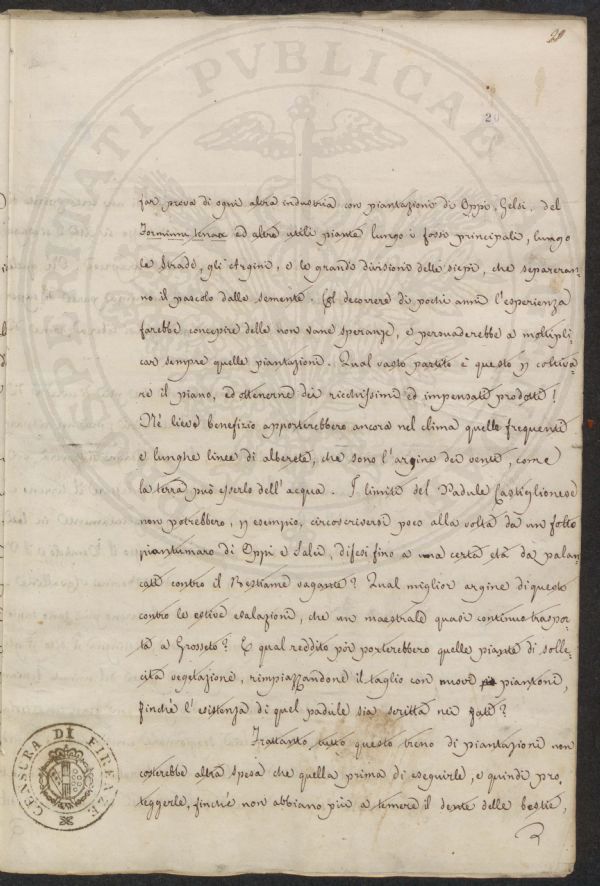 20
20
far prova di ogni altra industria con piantazioni di Oppi, Gelsi, del
Formium tenax ed altre utili piante lungo i fossi principali, lungo
le strade, gli Argini, e le grandi divisioni delle siepi, che separeran-
no il pascolo dalle sementi. Col decorrere di pochi anni l'esperienza
farebbe concepire delle non vane speranze, e persuaderebbe a moltipli-
car sempre quelle piantazioni. Qual vasto partito è questo p coltiva-
re il piano, ed ottenerne dei ricchissimi ed impensati prodotti!
Nè lieve benefizio apporterebbero ancora nel clima quelle frequenti
e lunghe linee di alberete, che sono l'argine dei venti, come
la terra può esserlo dell'acqua. I limiti del Padule Castiglionese
non potrebbero, p esempio, circoscriversi poco alla volta da un folto
piantumaro di Oppi e Salci, difesi fino a una certa età da palan-
cati contro il Bestiame vagante? Qual miglior argine di questo
contro le estive esalazioni, che un maestrale quasi continuo traspor-
ta a Grosseto? E qual reddito poi porterebbero quelle piante di solle-
cita vegetazione, rimpiazzandone il taglio con nuovi piantoni,
finchè l'esistenza di quel padule sia scritta nei fati?
Frattanto tutto questo treno di piantazioni non
costerebbe altra spesa che quella prima di eseguirle, e quindi pro-
teggerle, finchè non abbiano più a temere il dente delle bestie,
CENSURA DI FIRENZE